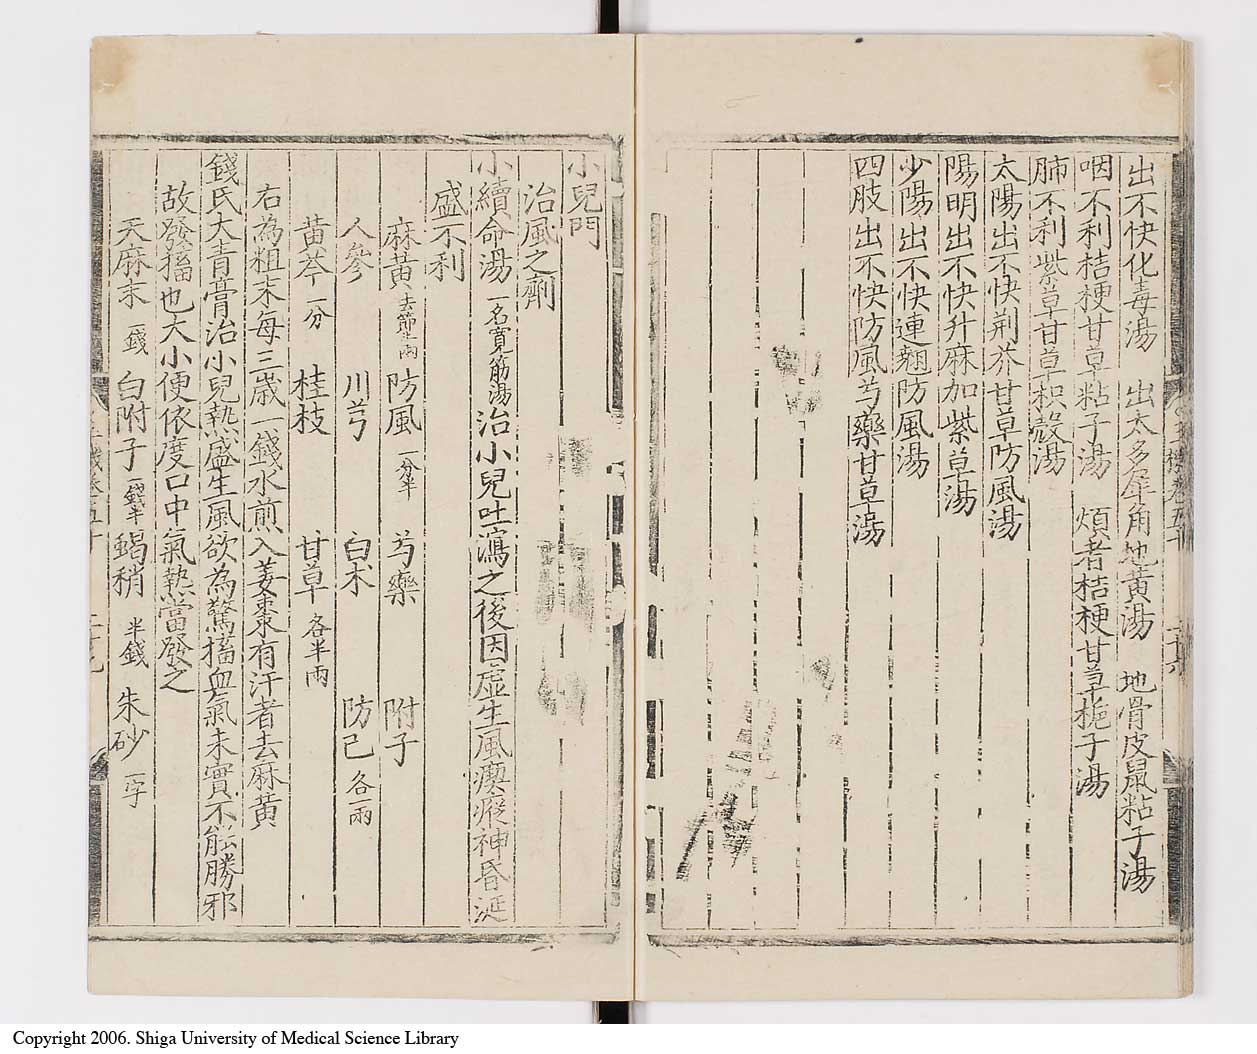 出不快化毒湯　出太多犀角地黃湯　地骨皮鼠粘子湯
咽不利桔梗甘草粘子湯　煩者桔梗甘草梔子湯
肺不利紫草甘草枳殼湯
太陽出不快荆芥甘草防風湯
陽明出不快升麻加紫草湯
少陽出不快連翹防風湯
四肢出不快防風芍藥甘草湯
小兒門
治風之劑
小續命湯一名寬筋湯治小兒吐瀉之後因虛生風瘼瘲神昏涎
盛不利
麻黃去節一兩　防風一分半　芍藥　附子
人參　川芎　白朮　防己各一兩
黃芩一分　桂枝　甘草各半兩
右為粗末每三歲一錢水煎入姜棗有汗者去麻黃
錢氏大青膏治小兒熱盛生風欲為驚搐血氣未實不能勝邪
故發搐也大小便依度口中氣熱當發之
天麻末一錢　白附子一錢半　蝎稍半錢　朱砂一字
Copyright 2006. Shiga University of Medical Science Library